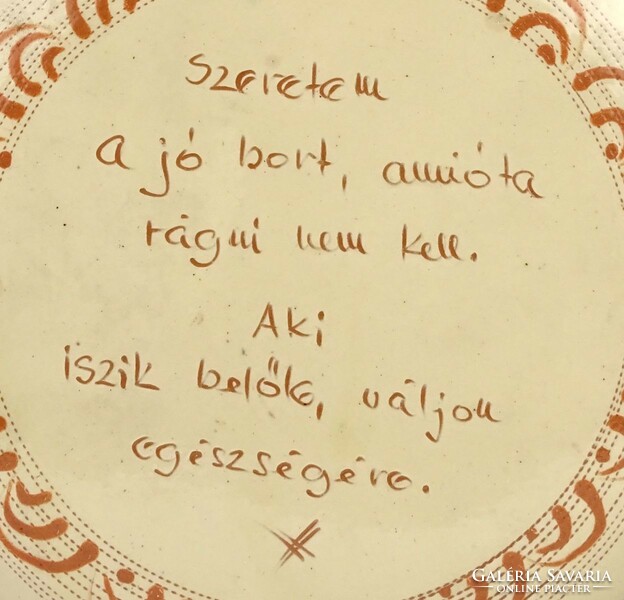 Szeretem
a jó bort, amióta
rágni nem kell.
Aki
iszik belőle, váljon
egészségére.
GALÉRIA SAVARIA
ONLINE PIACTÉR